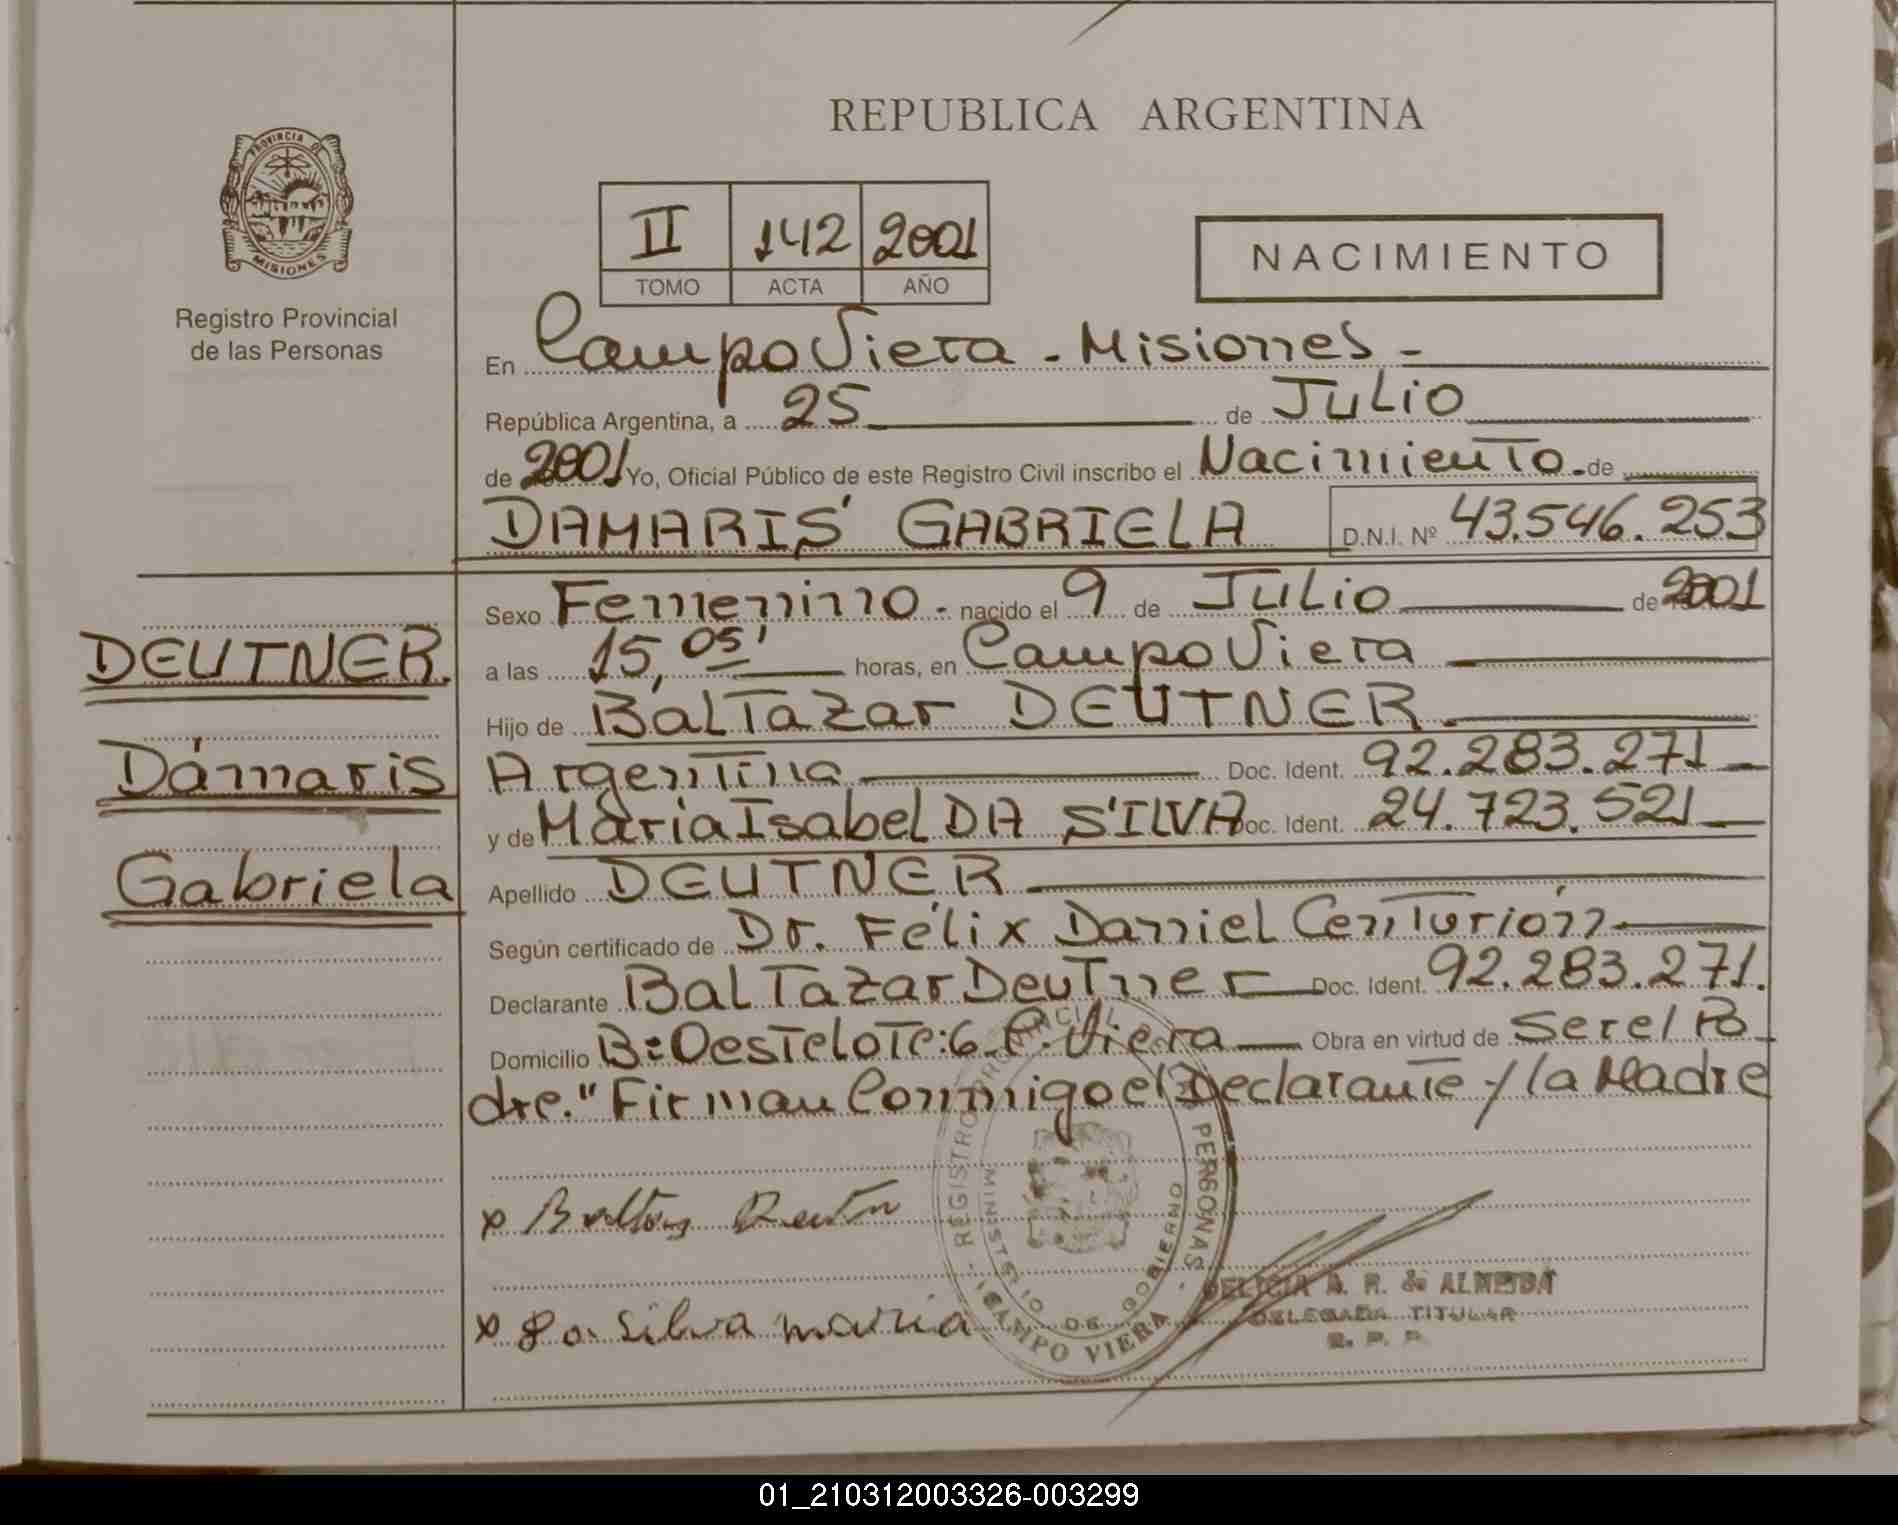 REPUBLICA ARGENTINA
PROVINCIA DE MISIONES
Registro Provincial
de las Personas
II 142 2001
TOMO ACTA AÑO
NACIMIENTO
En Campo Viera - Misiones -
República Argentina, a 25 de Julio
de 2001 Yo, Oficial Público de este Registro Civil inscribo el Nacimiento. de
DAMARIS GABRIELA D.N.I. Nº 43.546.253
Sexo Femenino - nacido el 9 de Julio de 2001
a las 15,05' horas, en Campo Viera
Hijo de Baltazar DEUTNER.
Argentina Doc. Ident. 92.283.271
y de María Isabel DA SILVA Doc. Ident. 24.723.521
Apellido DEUTNER
Según certificado de Dr. Félix Daniel Centurión
Declarante Baltazar Deutner Doc. Ident. 92.283.271.
Domicilio B: Oeste Lote: 6 C. Viera Obra en virtud de Ser el Pa
dre." Firman Conmigo el Declarante y la Madre
DEUTNER.
Dámaris
Gabriela
x Silva maria
REGISTRO PROVINCIAL PERSONAS
MINISTERIO DE GOBIERNO
CAMPO VIERA
DELICIA A. R. de ALMEIDA
DELEGADA TITULAR
R. P. P.
01_210312003326-003299